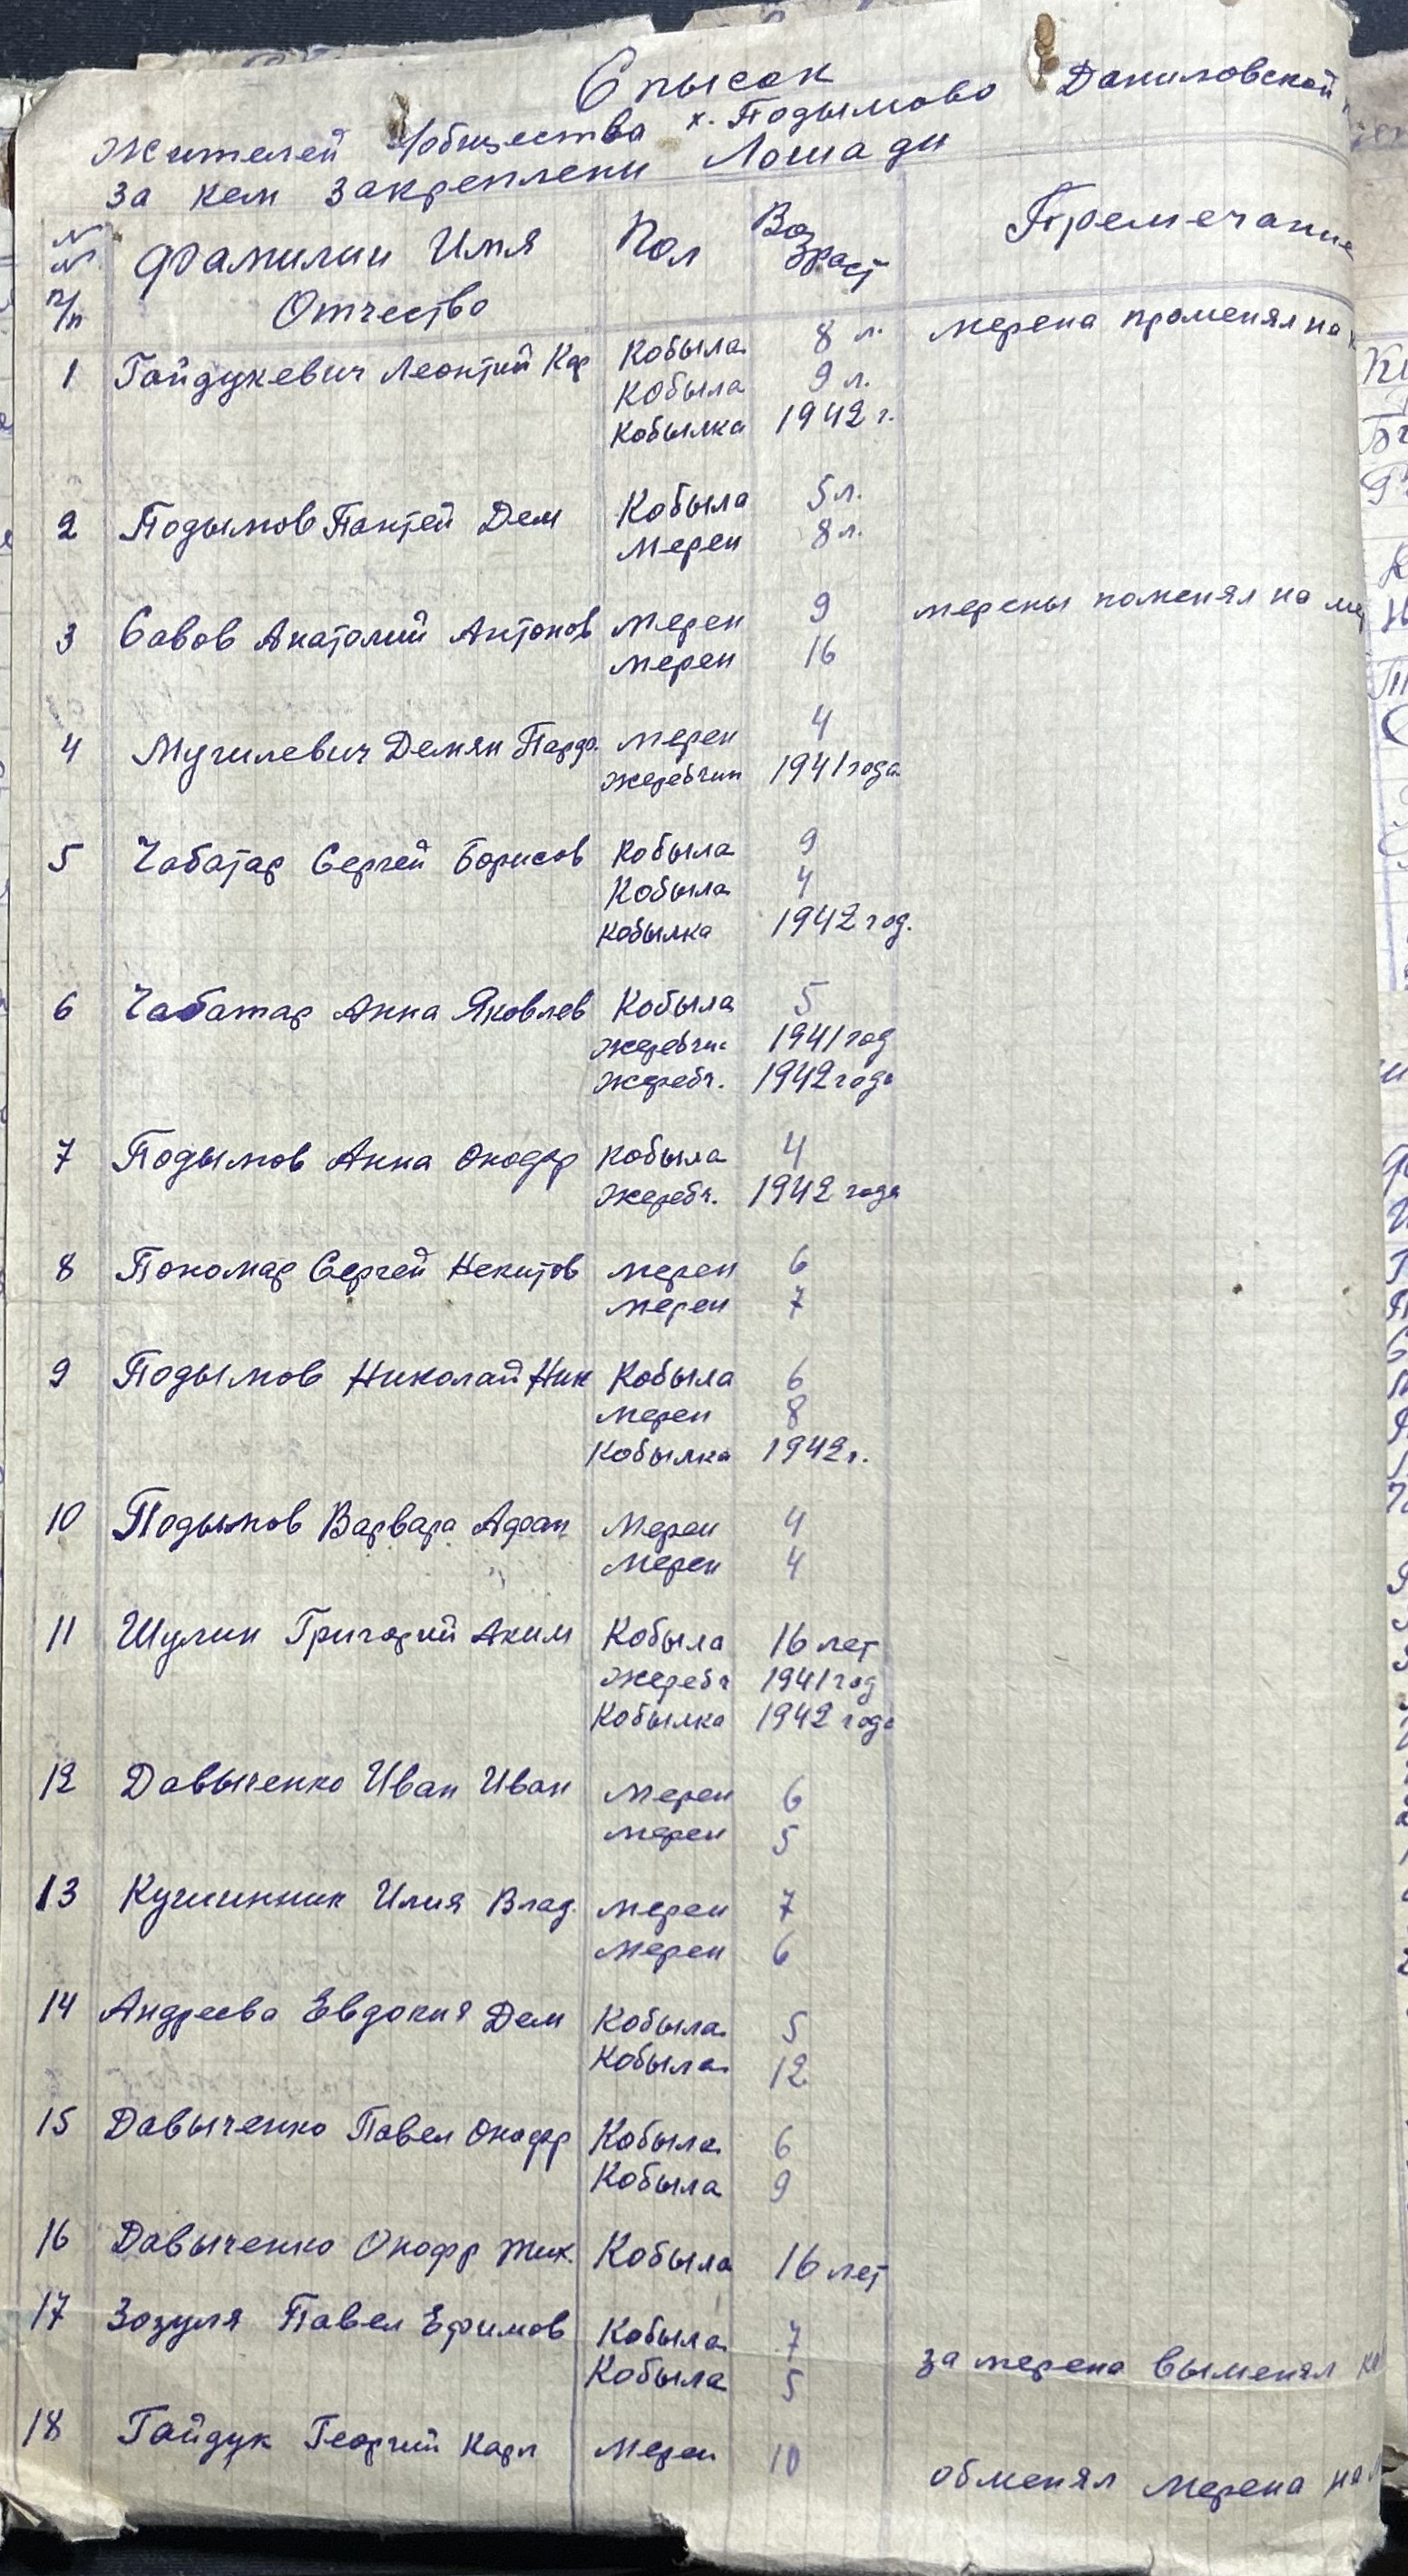 Спысок
жителей 1 общества х. Подымово Даниловской
за кем закреплени Лошади
№ № п/п Фамилии Имя Отчество Пол Возраст Премечание
1 Гайдукевич Леонтий Кар Кобыла 8 л. мерена променял на
Кобыла 9 л.
Кобылка 1942 г.
2 Подымов Пантей Дем Кобыла 5 л.
мерен 8 л.
3 Савов Анатолий Антонов мерен 9 мерены поменял на
мерен 16
4 Мугилевич Демян Парф. мерен 4
жеребчик 1941 года
5 Чабатар Сергей Борисов Кобыла 9
Кобыла 4
кобылка 1942 год.
6 Чабатар Анна Яковлев Кобыла 5
жеребчик 1941 год
жеребч. 1942 года
7 Подымов Анна Онофр кобыла 4
жеребч. 1942 года
8 Пономар Сергей Некитов мерен 6
мерен 7
9 Подымов Николай Ник Кобыла 6
мерен 8
Кобылка 1942 г.
10 Подымов Варвара Афан Мерен 4
мерен 4
11 Шулик Григорий Аким Кобыла 16 лет
жеребч 1941 год
Кобылка 1942 года
12 Давыченко Иван Иван мерен 6
мерен 5
13 Кушинник Илия Влад. мерен 7
мерен 6
14 Андреева Евдокия Дем Кобыла 5
Кобыла 12
15 Давыченко Павел Онофр Кобыла 6
Кобыла 9
16 Давыченко Онофр Мих. Кобыла 16 лет
17 Зозуля Павел Ефимов Кобыла 7
Кобыла 5 за мерена выменял
18 Гайдук Георгий Карл Мерен 10
обменял мерена на